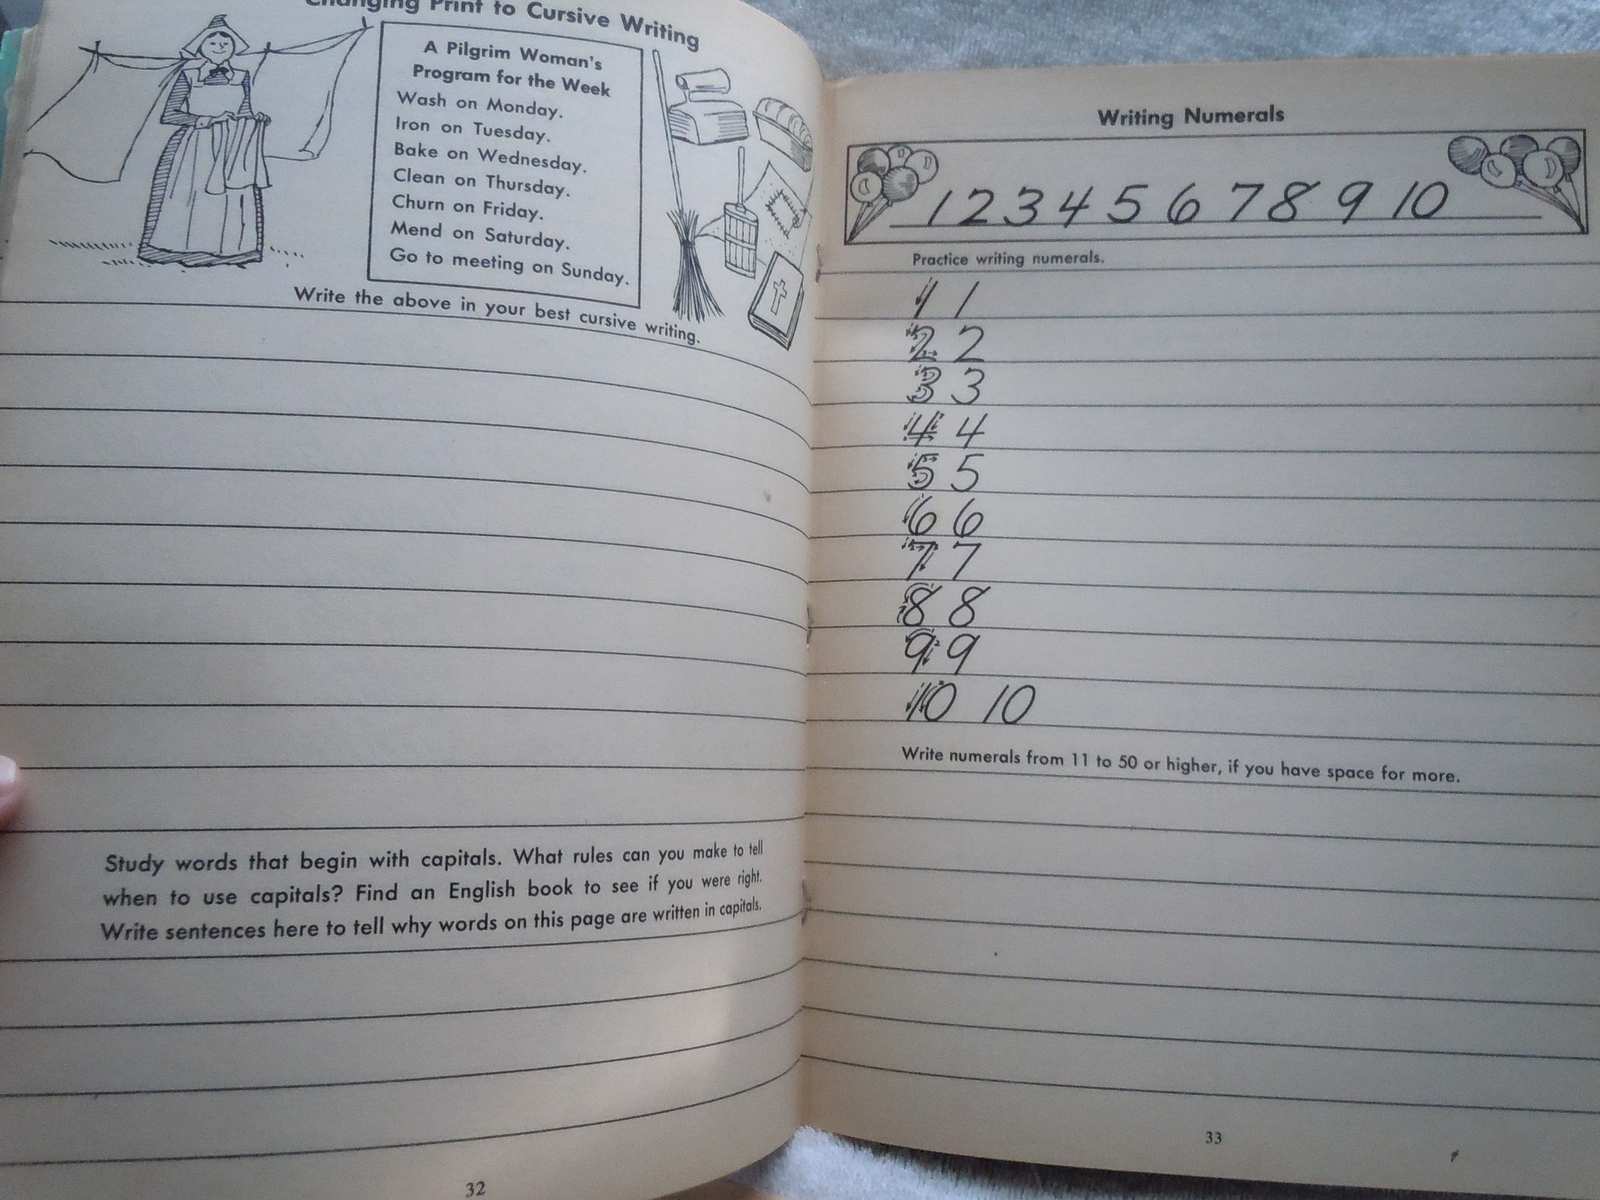 Changing Print to Cursive Writing
A Pilgrim Woman's
Program for the Week
Wash on Monday.
Iron on Tuesday.
Bake on Wednesday.
Clean on Thursday.
Churn on Friday.
Mend on Saturday.
Go to meeting on Sunday.
Write the above in your best cursive writing.
Study words that begin with capitals. What rules can you make to tell
when to use capitals? Find an English book to see if you were right.
Write sentences here to tell why words on this page are written in capitals.
32
Writing Numerals
1 2 3 4 5 6 7 8 9 10
Practice writing numerals.
1 1
2 2
3 3
4 4
5 5
6 6
7 7
8 8
9 9
10 10
Write numerals from 11 to 50 or higher, if you have space for more.
33